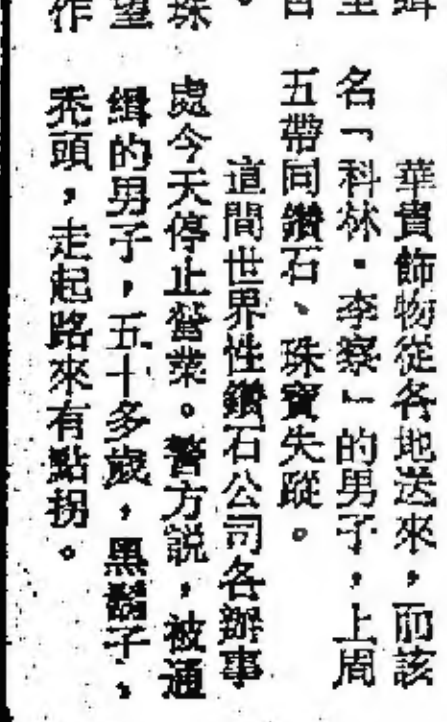 華貴飾物從各地送來，而該
名「科林．李察」的男子，上周
五帶同鑽石、珠寶失蹤。
道間世界性鑽石公司各辦事
處今天停止營業。警方説，被通
緝的男子，五十多歲，黑鬍子，
禿頭，走起路來有點拐。
緝
至
．
珠
望
作